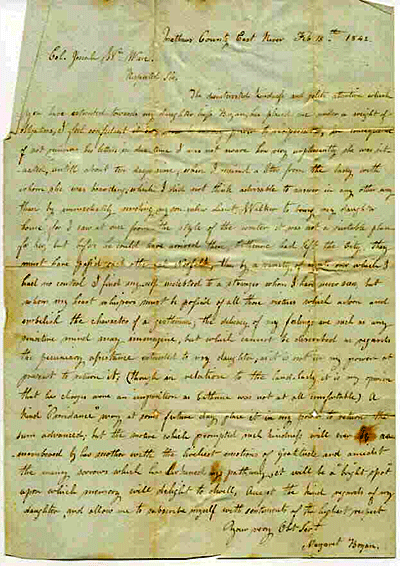 Mathews County East River Feb 18th 1842
Col. Josiah Wm Ware
Respected Sir,
The disinterested kindness and polite attention which
you have extended towards my daughter Miss Bryan, has placed me under a weight of
I feel confident power to in consequence
of not receiving her letters in due time I was not aware how very she was
until about two days since, when I received a letter from the lady with
whom she was boarding, which I did not think advisable to answer in any other way
than by immediately sending my Lieut. Walker to bring my daughter
home, for I saw at once from the style of the writer it was not a suitable place
for her, but before he could have arrived there had left the City, they
must have passed each other Thus by a variety of over which I
had no control I find myself indebted to a stranger whom I have never seen, but
whom my heart whispers must be possessed of all those virtues which adorn and
embellish the character of a gentleman, the delicacy of my feelings are such as any
sensitive mind may immagine, but which cannot be described as regards
the pecuniary assistance extended to my daughter, as it is not in my power at
present to return it, (though in relation to the landlady it is my opinion
that her charge were an imposition as was not at all comfortable) A
kind "Providence" may at some future day place it in my power to return the
sum advanced, but the motive which prompted such kindness will ever be
remembered by his mother with the liveliest emotions of gratitude and amidst
the many sorrows which has darkened my pathway, it will be a bright spot
upon which memory will delight to dwell, Accept the kind regards of my
daughter, and allow me to subscribe myself with sentiments of the highest respect
Your very Obt Servt
Margaret Bryan.